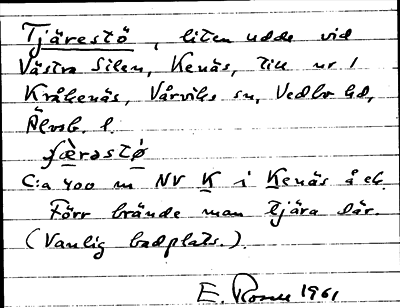 Tjärestö, liten udde vid
Västra Silen, Kenäs, till nr 1
Kråkenäs, Vårviks sn, Vedbo hd,
Älvsb. l.
C:a 400 m NV K i Kenäs å ek.
Förr brände man tjära där.
(Vanlig badplats.)
E. 1961